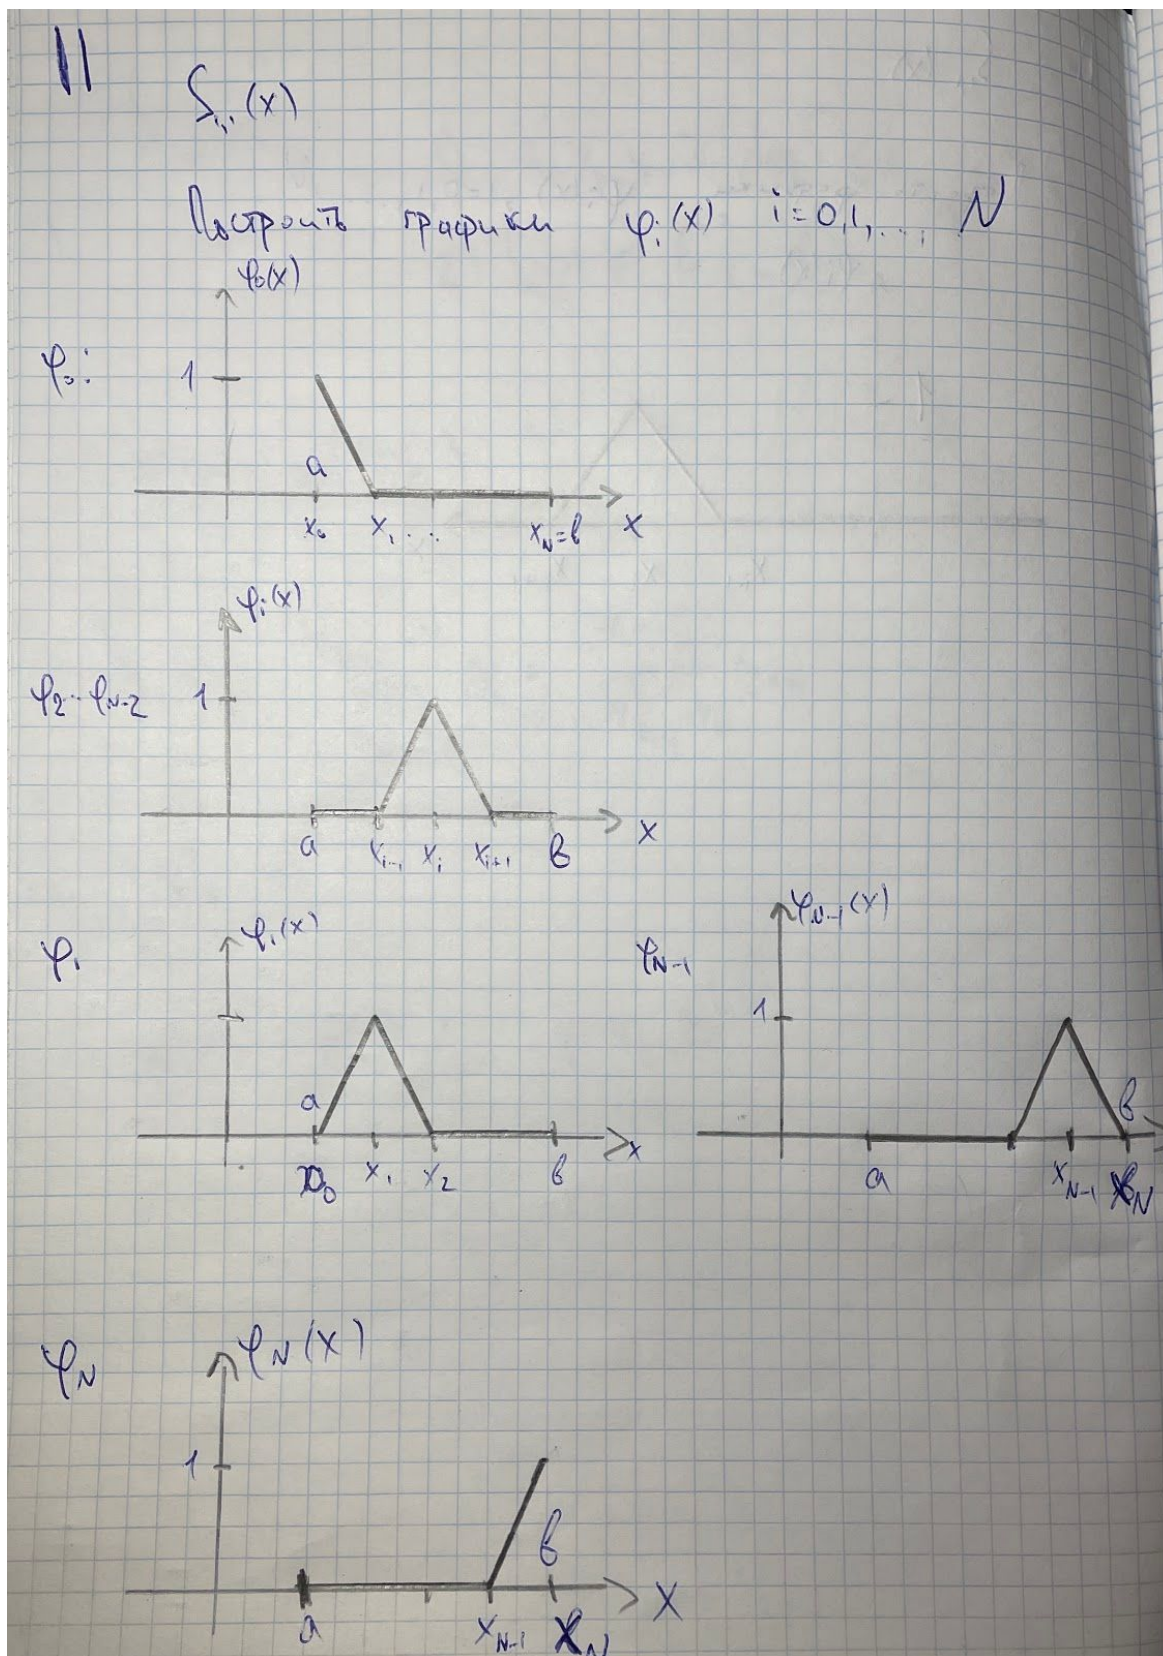 11
S₁,₁(x)
Построить графики φᵢ(x) i=0,1,..., N
φ₀(x)
φ₀:
1
a
x₀ x₁ ... x_N=b x
φᵢ(x)
φ₂...φ_N-2 1
a xᵢ₋₁ xᵢ xᵢ₊₁ b x
φ₁ φ₁(x)
a
x₀ x₁ x₂ b x
φ_N-1 φ_N-1(x)
1
b
a x_N-1 x_N
φ_N φ_N(x)
1
b
a x_N-1 x_N x